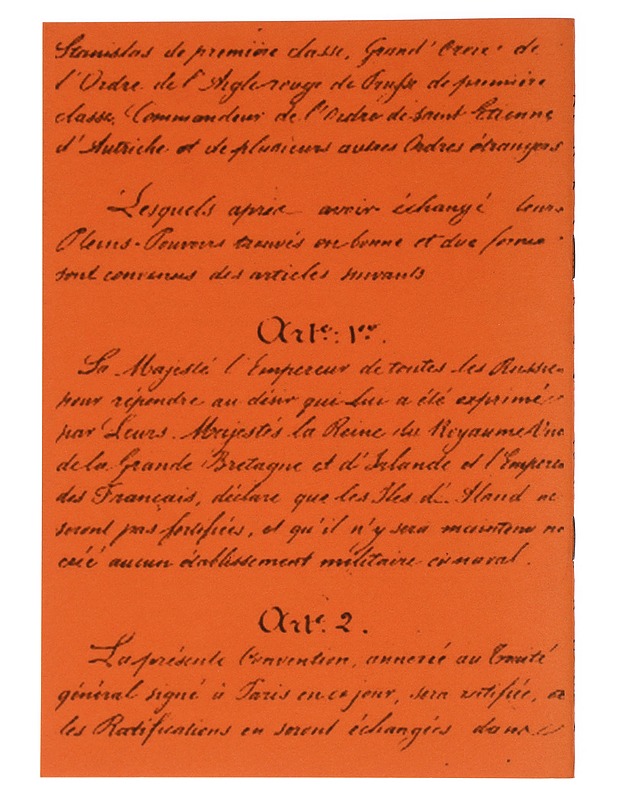 Stanislas de première classe, Grand' Croix de
l'Ordre de l'Aigle rouge de Prusse de première
classe, Commandeur de l'Ordre de Saint Etienne
d'Autriche et de plusieurs autres Ordres étrangers
Lesquels après avoir échangé leurs
Pleins-Pouvoirs trouvés en bonne et due forme
sont convenus des articles suivants
Arte. 1er.
Sa Majesté l'Empereur de toutes les Russies
pour répondre au désir qui Lui a été exprimé
par Leurs Majestés la Reine du Royaume Uni
de la Grande Bretagne et d'Irlande et l'Empere
des Français, déclare que les Iles d'Aland ne
seront pas fortifiées, et qu'il n'y sera maintenu ni
créé aucun établissement militaire ou naval.
Arte. 2.
La présente Convention, annexée au Traité
général signé à Paris en ce jour, sera ratifiée, et
les Ratifications en seront échangées dans